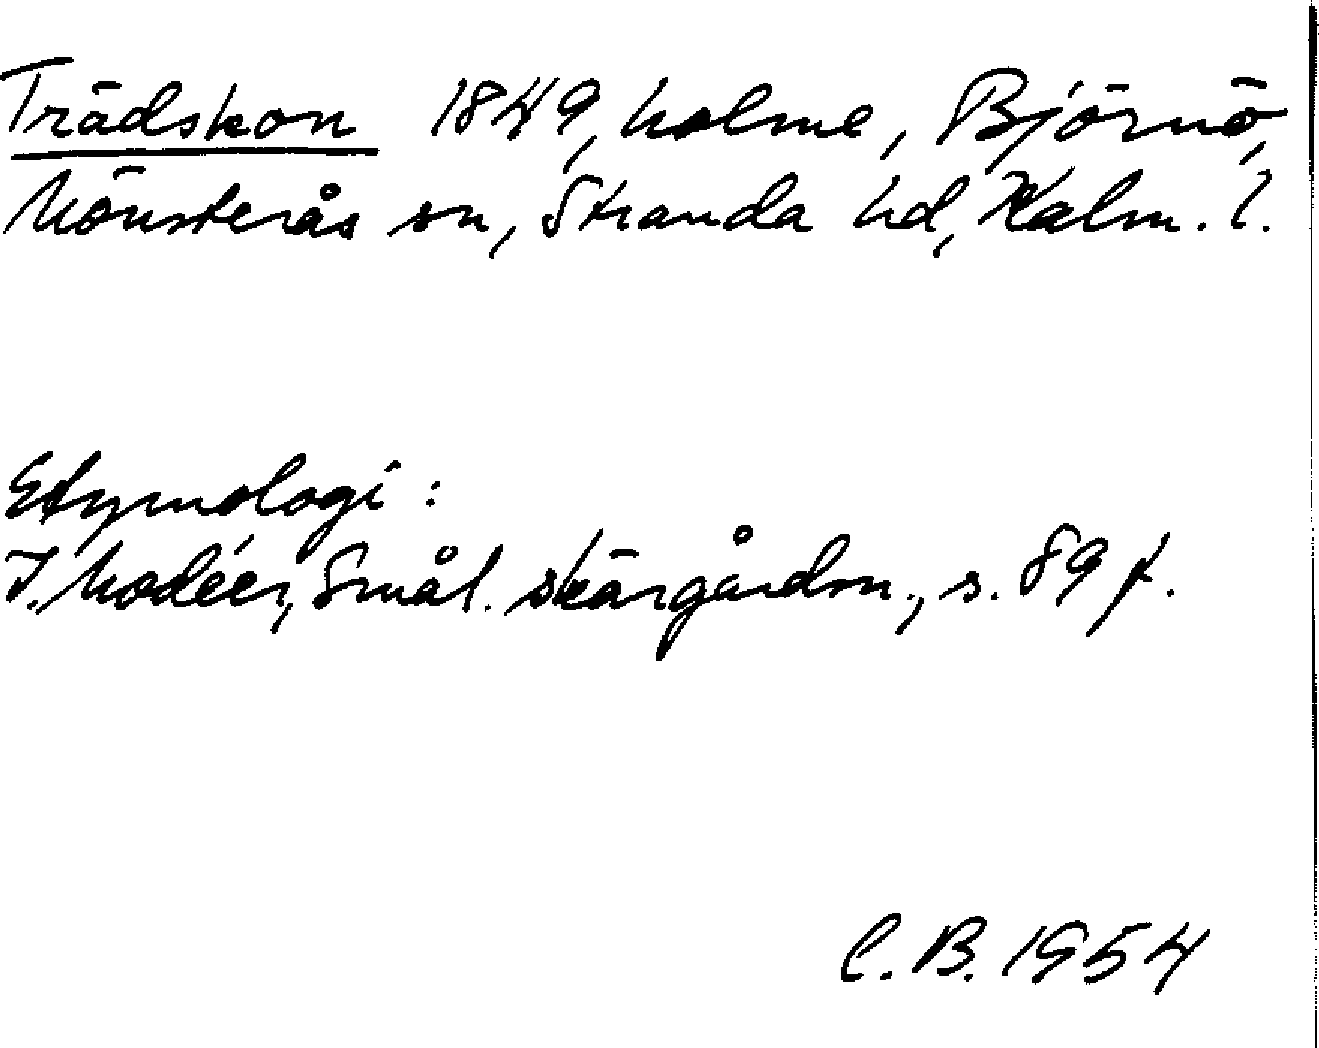 Trädskon 1849, holme, Björnö,
Mönsterås sn, Stranda hd, Kalm. l.
Etymologi:
I. Modéer, Smål. skärgårdsn., s. 89 f.
C. B. 1954